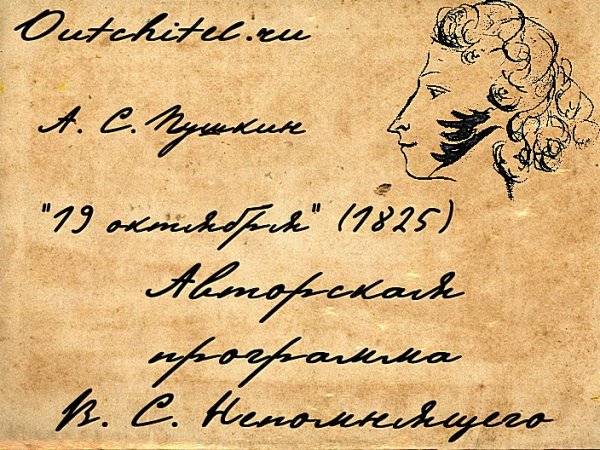 Outchitel.ru
А. С. Пушкин
"19 октября" (1825)
Авторская
программа
В. С. Непомнящего